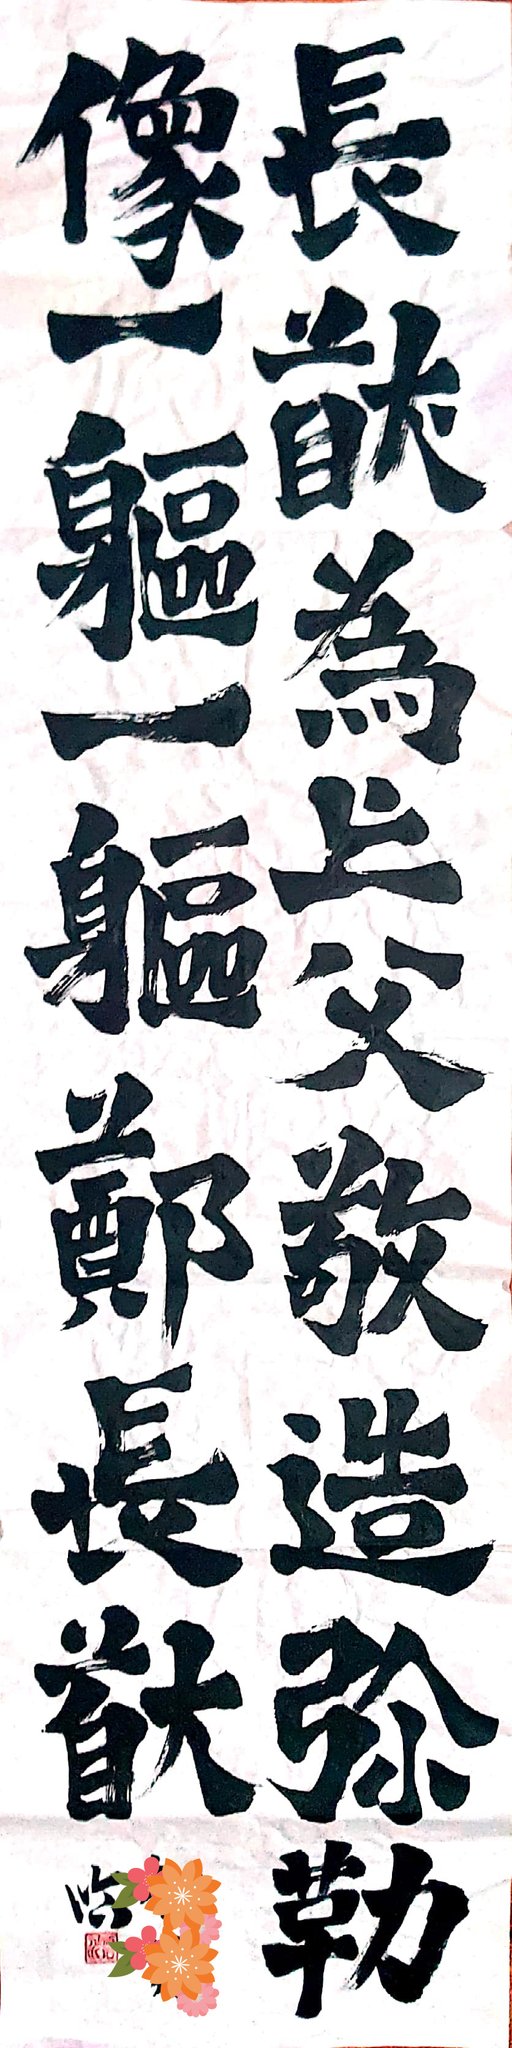 長猷為亡父敬造弥勒
像一軀一軀鄭長猷